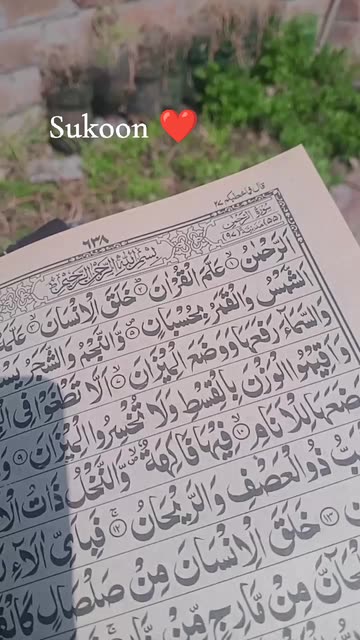 Sukoon ❤️
قال فما خطبكم ٢٧
٦٣٨
بِسْمِ اللّٰهِ الرَّحْمٰنِ الرَّحِيْمِ
اَلرَّحْمٰنُ ۙ۱ عَلَّمَ الْقُرْاٰنَ ؕ۲ خَلَقَ الْاِنْسَانَ ۙ۳
اَلشَّمْسُ وَالْقَمَرُ بِحُسْبَانٍ ۪۵ وَّالنَّجْمُ وَالشَّجَرُ
وَالسَّمَآءَ رَفَعَهَا وَوَضَعَ الْمِيْزَانَ ۙ۷ اَلَّا تَطْغَوْا فِى
وَاَقِيْمُوا الْوَزْنَ بِالْقِسْطِ وَلَا تُخْسِرُوا الْمِيْزَانَ ۹
وَضَعَهَا لِلْاَنَامِ ۙ۱۰ فِيْهَا فَاكِهَةٌ وَّالنَّخْلُ ذَاتُ
ذُو الْعَصْفِ وَالرَّيْحَانُ ۚ۱۲ فَبِاَىِّ اٰلَآءِ
خَلَقَ الْاِنْسَانَ مِنْ صَلْصَالٍ
مِنْ مَّارِجٍ مِّنْ